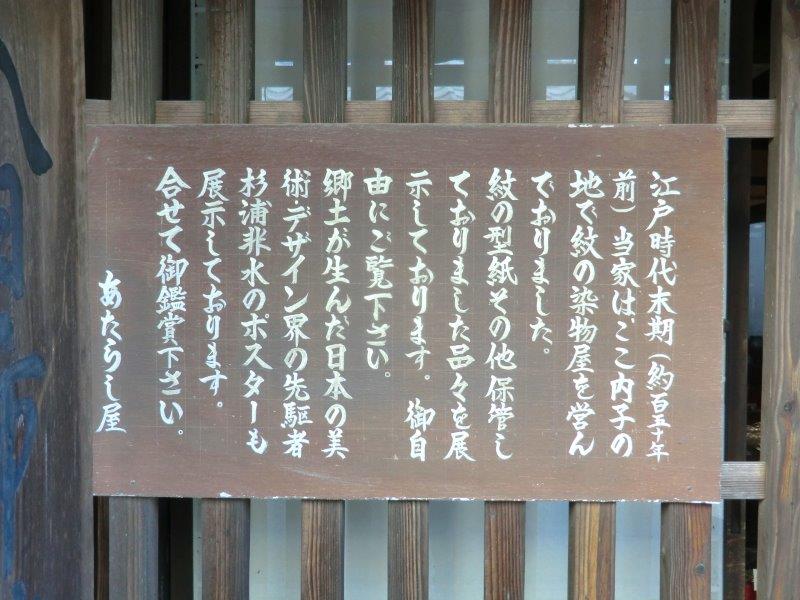 江戸時代末期(約百五十年
前)当家はここ内子の
地で紋の染物屋を営ん
でおりました。
紋の型紙その他保管し
ておりました品々を展
示しております。御自
由にご覧下さい。
郷土が生んだ日本の美
術・デザイン界の先駆者
杉浦非水のポスターも
展示しております。
合せて御鑑賞下さい。
あたらし屋